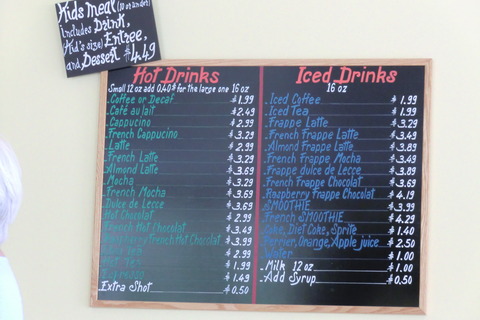 Kids Meal (10 or under)
includes Drink,
(Kid's size) Entree,
and Dessert $4.49
Hot Drinks
Small 12 oz add 0.40¢ for the large one 16 oz
Coffee or Decaf $1.99
Café au lait $2.49
Cappucino $2.99
French Cappucino $3.29
Latte $2.99
French Latte $3.29
Almond Latte $3.69
Mocha $3.29
French Mocha $3.69
Dulce de Lecce $3.69
Hot Chocolat $2.99
French Hot Chocolat $3.49
Raspberry French Hot Chocolat $3.99
$2.99
$1.99
Espresso $1.49
Extra Shot $0.50
Iced Drinks
16 oz
Iced Coffee $1.99
Iced Tea $1.99
Frappe Latte $3.29
French Frappe Latte $3.49
Almond Frappe Latte $3.89
French Frappe Mocha $3.49
Frappe dulce de Lecce $3.89
French Frappe Chocolat $3.69
Raspberry Frappe Chocolat $4.19
SMOOTHIE $3.99
French SMOOTHIE $4.29
Coke, Diet Coke, Sprite $1.40
Perrier, Orange, Apple juice $2.50
Water $1.00
Milk 12 oz $1.00
Add Syrup $0.50